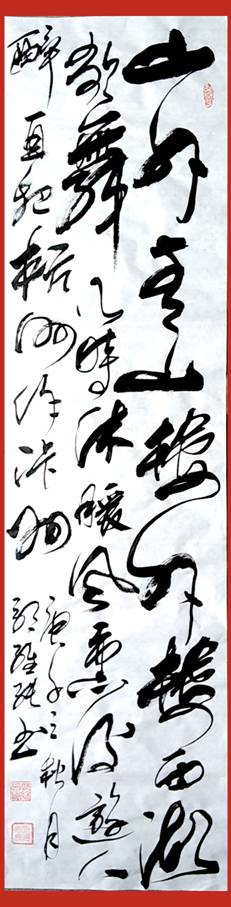 山外青山樓外樓西湖
歌舞几時休暖风熏得遊人
醉直把杭州作汴州
庚子之秋月
书